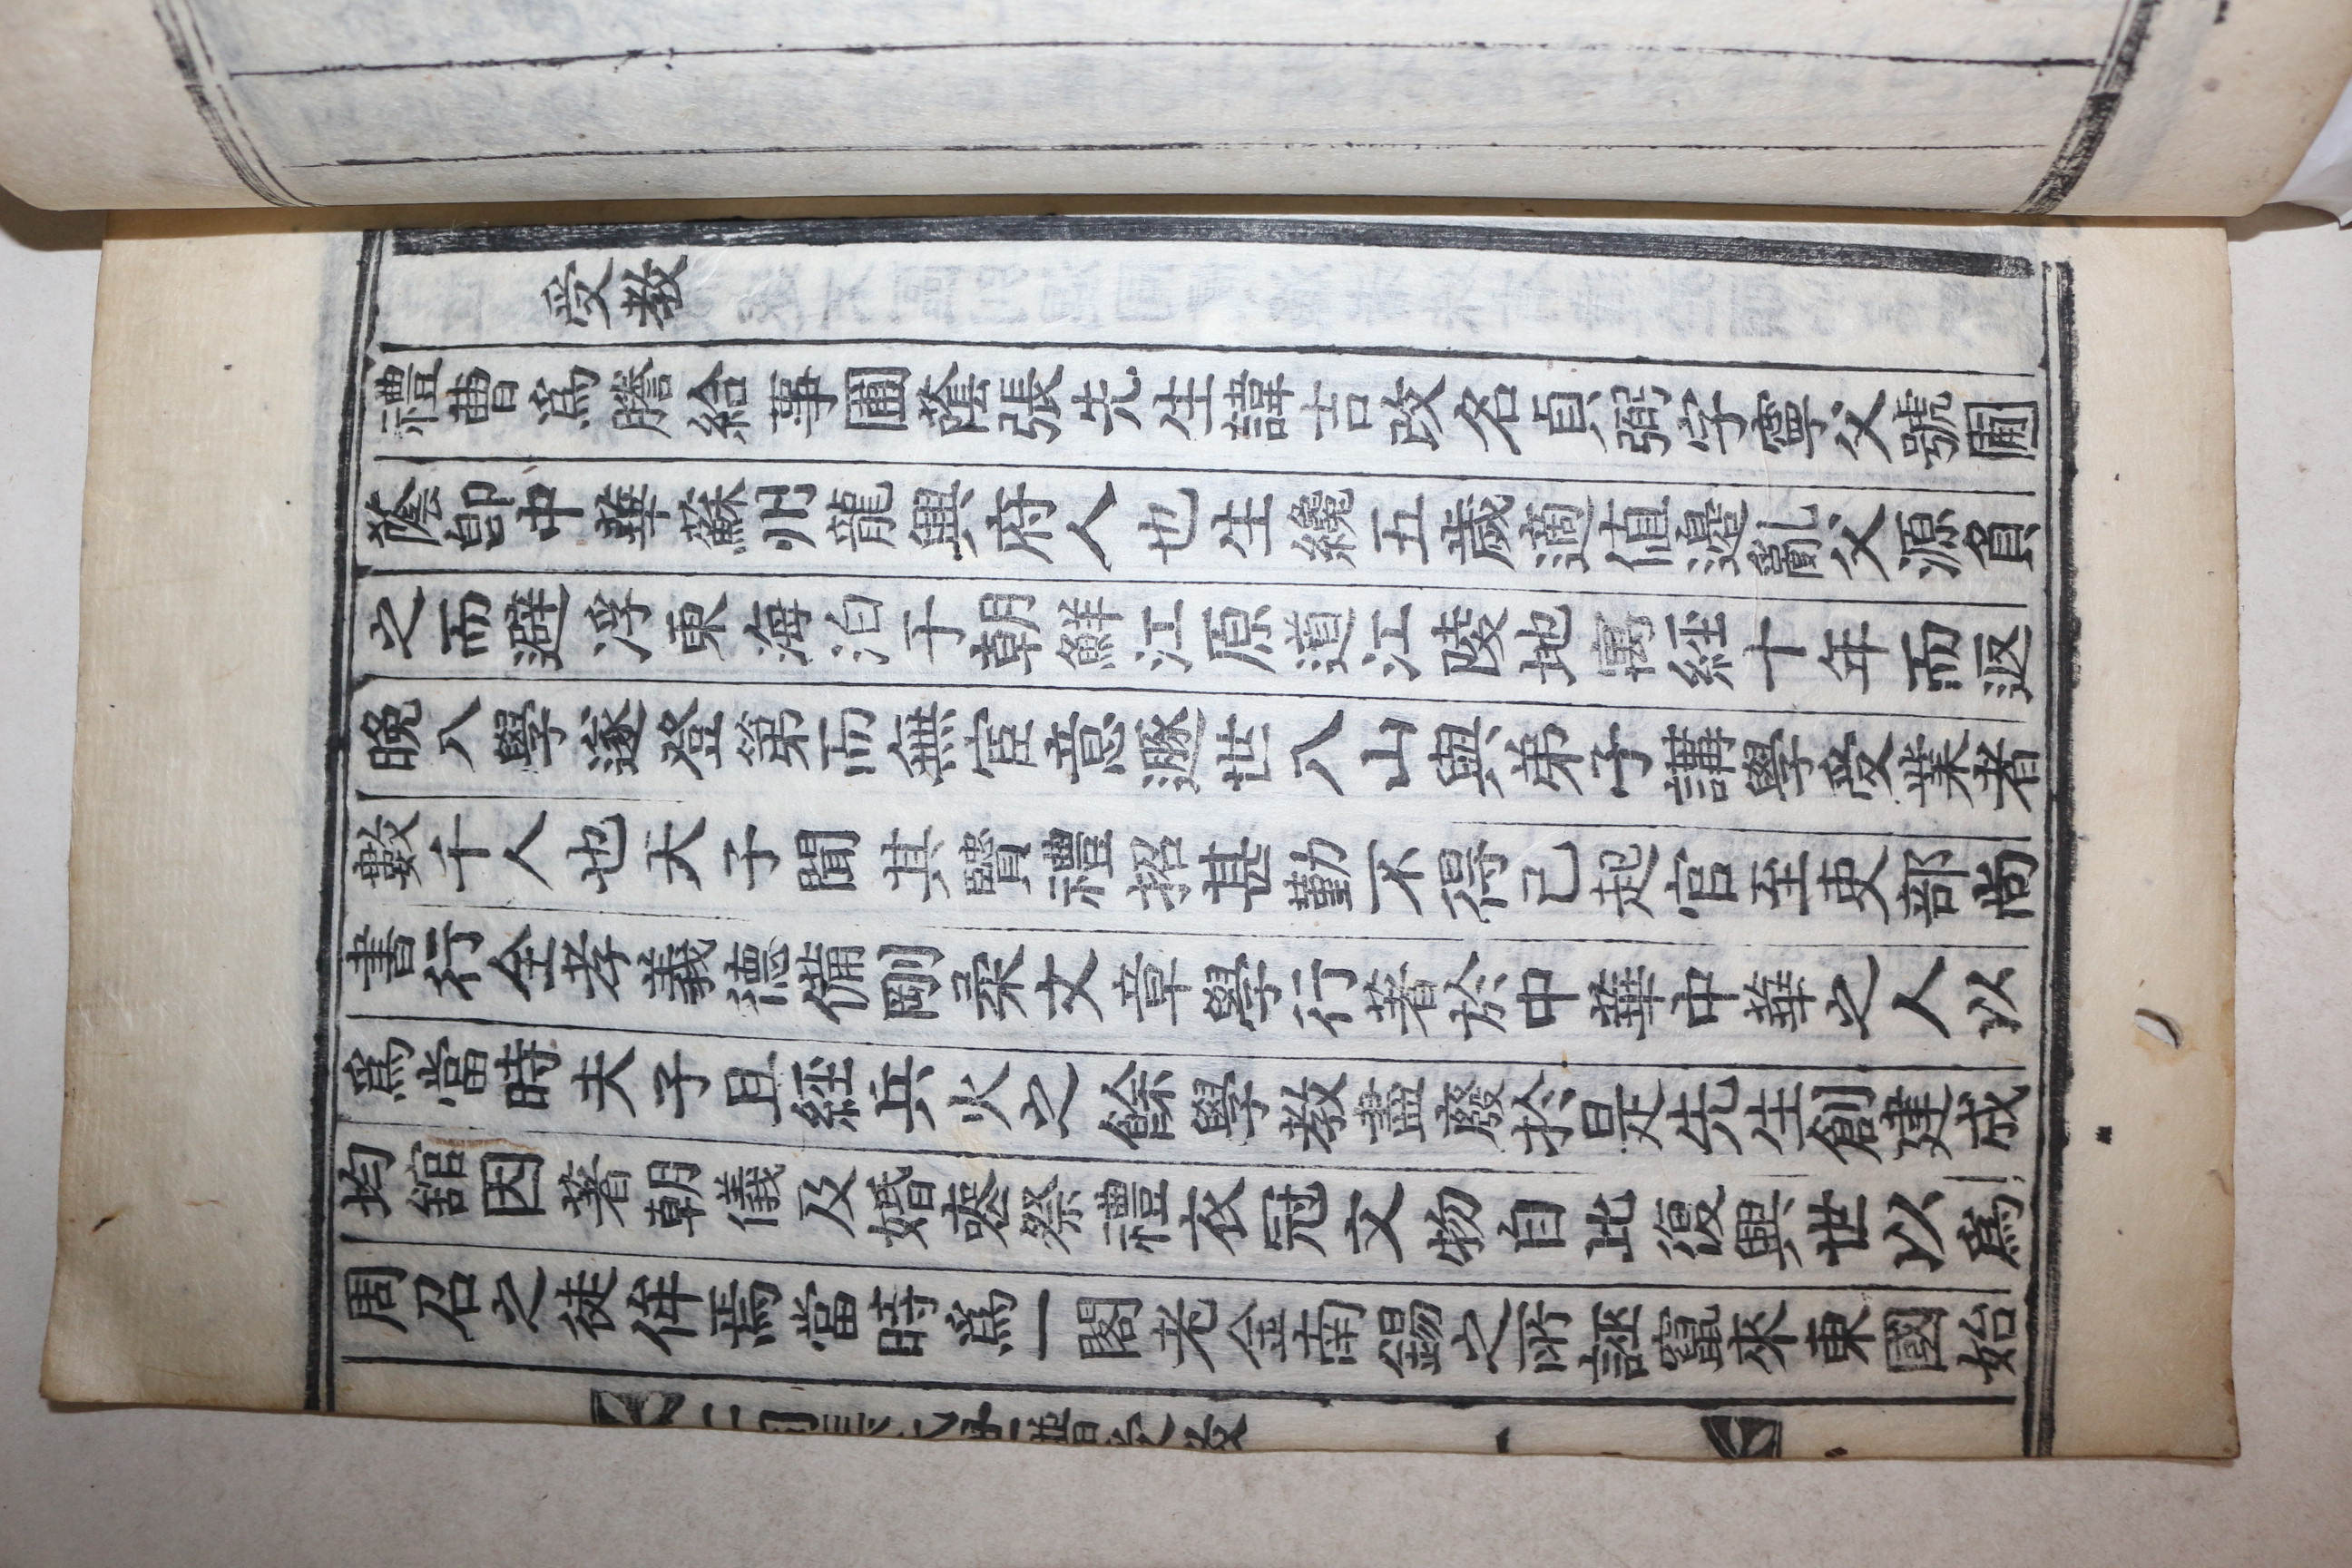 受教
禮曹爲謄給事圃蔭張先生諱吉改名貞弼字寧父號圃
蔭卽中華蘇州龍興府人也生纔五歲適值邊亂父源負
之而避浮東海泊于朝鮮江原道江陵地寓経十年而返
晚入學遂登第而無宦意遯世入山與弟子講學受業者
數千人也天子聞其贒禮招甚勤不得已起官至吏部尚
書行全孝義德備剛柔文章學行著於中華中華之人以
爲當時夫子且経兵火之餘學教盡廢於是先生創建成
均舘因著朝儀及婚喪祭禮衣冠文物自此復興世以爲
周召之徒侔焉當時爲一閣老金南錫之所誣竄來東國始